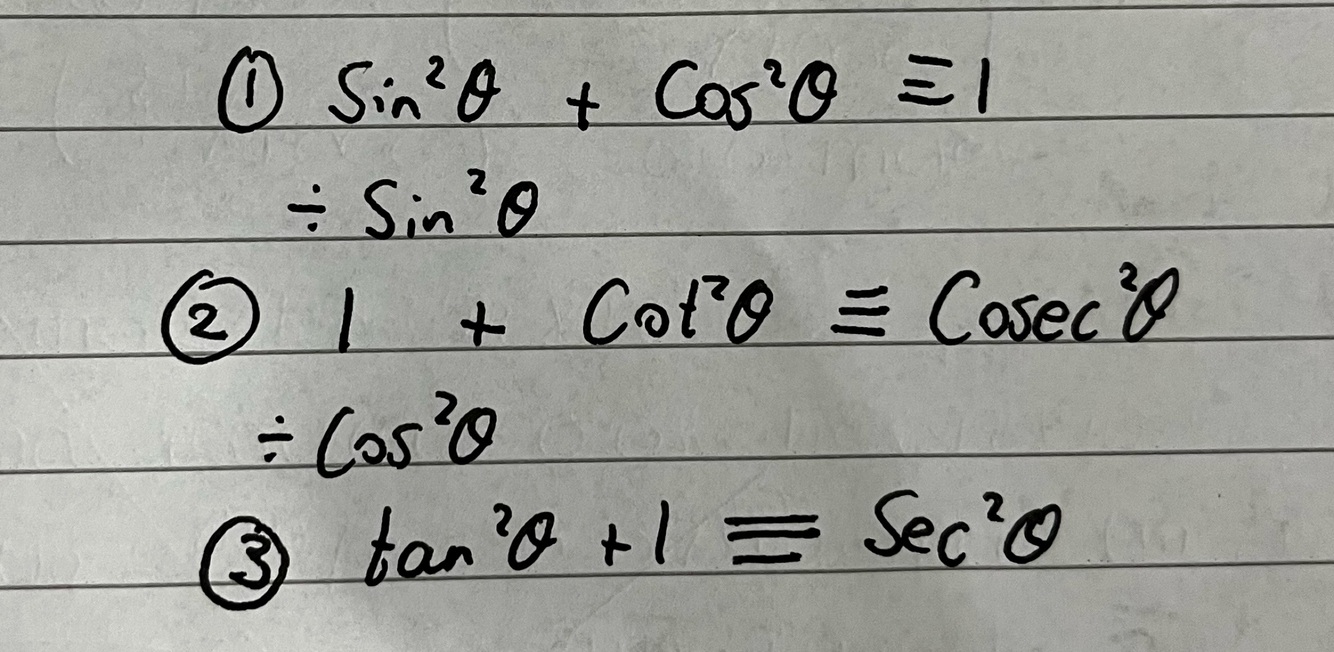 ① Sin²θ + Cos²θ ≡ 1
÷ Sin²θ
② 1 + Cot²θ ≡ Cosec²θ
÷ Cos²θ
③ tan²θ + 1 ≡ Sec²θ